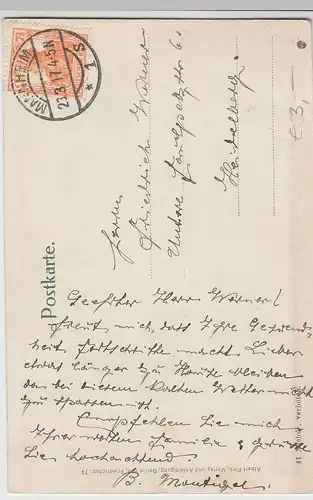 MANNHEIM
23.3.17.4-5N
* 1 S
€ 3,-
Postkarte.
Herrn
Friedrich Werner
Untere Faulpelz str 6.
Heidelberg.
Geehrter Herr Werner!
Freut mich, dass Ihre Gesund-
heit Fortschritte macht. Lieber
etwas länger zu Hause bleiben
da bei diesem kalten Wetter nicht
zu spassen ist.
Empfehlen Sie mich
Ihrer werten Familie & grüsse
Sie hochachtend.
B. Montigel.
Albert Fries, Verlag und Anfertigung, Berlin Friedrichstr. 74
41 verboten